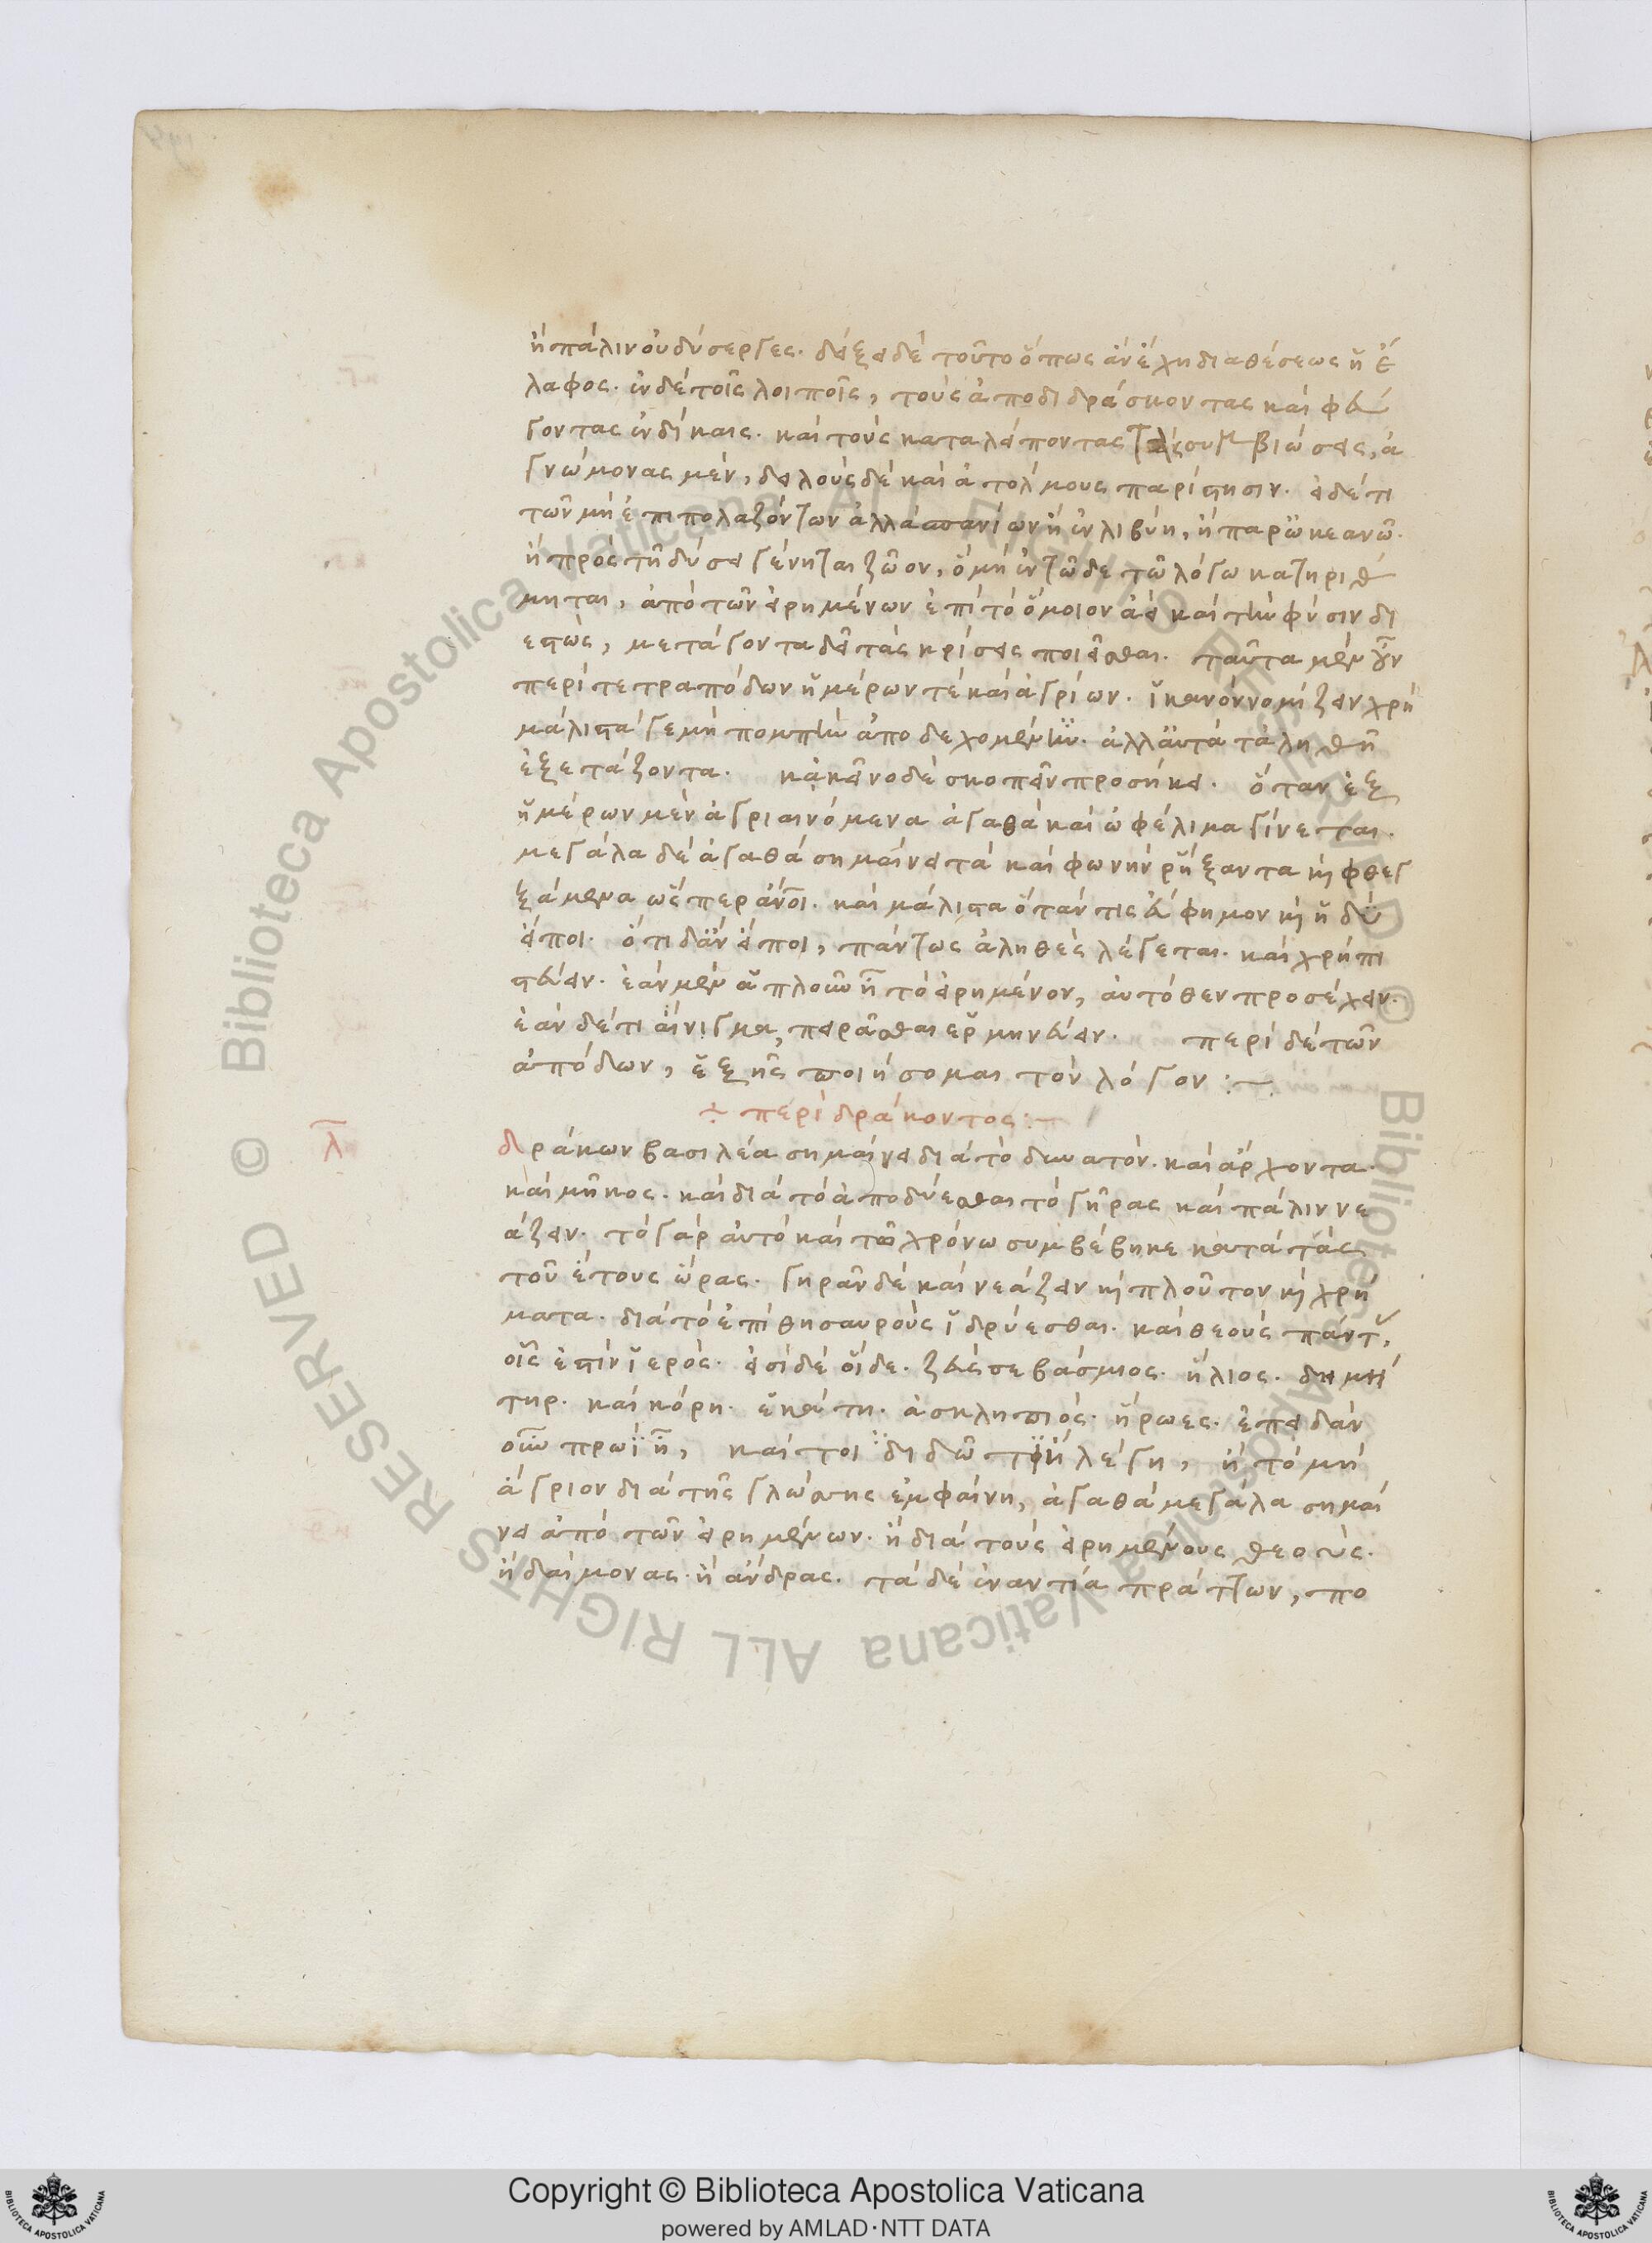 ἢ πάλιν οὐ δύσεργες. δείξει δὲ τοῦτο ὅπως ἂν ἔχη διαθέσεως ἡ ἔ
λαφος. ἐν δὲ τοῖς λοιποῖς, τοὺς ἀποδιδράσκοντας καὶ φεύ
γοντας ἐν δίκαις. καὶ τοὺς καταλείποντας τὰς συμβιώσεις, ἀ
γνώμονας μὲν, δειλοὺς δὲ καὶ ἀτόλμους παρίστησιν. εἰ δέ τι
τῶν μὴ ἐπιπολαζόντων ἀλλὰ σπανίων ἢ ἐν λιβύη, ἢ παρ' ὠκεανῶ.
ἢ πρὸς τῆ δύσει γένηται ζῶον, ὃ μὴ ἐν τῶδε τῶ λόγω κατηρίθ
μηται, ἀπὸ τῶν εἰρημένων ἐπὶ τὸ ὅμοιον ἀεὶ καὶ τὴν φύσιν δι
εστὼς, μετάγοντα δεῖ τὰς κρίσεις ποιεῖσθαι. ταῦτα μὲν οὖν
περὶ τετραπόδων ἡμέρων τὲ καὶ ἀγρίων. ἱκανὸν νομίζειν χρὴ
μάλιστά γε μὴ πομπὴν ἀποδεχομένην. ἀλλ' αὐτὰ τἀληθῆ
ἐξετάζοντα. κἀκεῖνο δὲ σκοπεῖν προσήκει. ὅταν ἐξ
ἡμέρων μὲν ἀγριαινόμενα ἀγαθὰ καὶ ὠφέλιμα γίνεται.
μεγάλα δὲ ἀγαθὰ σημαίνει τὰ καὶ φωνὴν ῥήξαντα κὶ φθεγ
ξάμενα ὥσπερ ἄνοι. καὶ μάλιστα ὅταν τις εὔφημον κὶ ἡδὺ
εἴποι. ὅτι δ' ἂν εἴποι, πάντως ἀληθὲς λέγεται. καὶ χρὴ πι
στεύειν. ἐὰν μὲν ἁπλοῦν ἦ τὸ εἰρημένον, αὐτόθεν προσέχειν.
ἐὰν δέ τι αἴνιγμα, πειρᾶσθαι ἑρμηνεύειν. περὶ δὲ τῶν
ἀπόδων, ἑξῆς ποιήσομαι τὸν λόγον :~
÷ περὶ δράκοντος :~
λ δράκων βασιλέα σημαίνει διὰ τὸ δυνατόν. καὶ ἄρχοντα.
καὶ μῆκος. καὶ διὰ τὸ ἀποδύεσθαι τὸ γῆρας καὶ πάλιν νε
άζειν. τὸ γὰρ αὐτὸ καὶ τῶ χρόνω συμβέβηκε κατὰ τὰς
τοῦ ἔτους ὥρας. γηρᾶν δὲ καὶ νεάζειν κὶ πλοῦτον κὶ χρή
ματα. διὰ τὸ ἐπὶ θησαυροὺς ἱδρύεσθαι. καὶ θεοὺς πάντ,
οἷς ἐστὶν ἱερός. εἰσὶ δὲ οἵδε. ζεὺς σεβάσμιος. ἥλιος. δημή
τηρ. καὶ κόρη. ἑκάτη. ἀσκληπιός. ἥρωες. ἐπειδὰν
οὖν πρωὶ ἦ, καί τοι διδῶ τι ἢ λέγη, ἢ τὸ μὴ
ἄγριον διὰ τῆς γλώσσης ἐμφαίνη, ἀγαθὰ μεγάλα σημαί
νει ἀπὸ τῶν εἰρημένων. ἢ διὰ τοὺς εἰρημένους θεούς.
ἢ δαίμονας. ἢ ἄνδρας. τὰ δὲ ἐναντία πράττων, πο
© Biblioteca Apostolica Vaticana ALL RIGHTS RESERVED
Copyright © Biblioteca Apostolica Vaticana
powered by AMLAD·NTT DATA
BIBLIOTECA APOSTOLICA VATICANA
BIBLIOTECA APOSTOLICA VATICANA